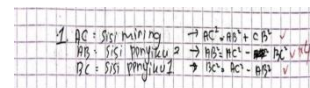 1. AC : sisi miring → AC² = AB² + CB² ✓
AB : sisi penyiku 2 → AB² = AC² - BC² ✓ x4
BC : sisi penyiku 1 → BC² = AC² - AB² ✓